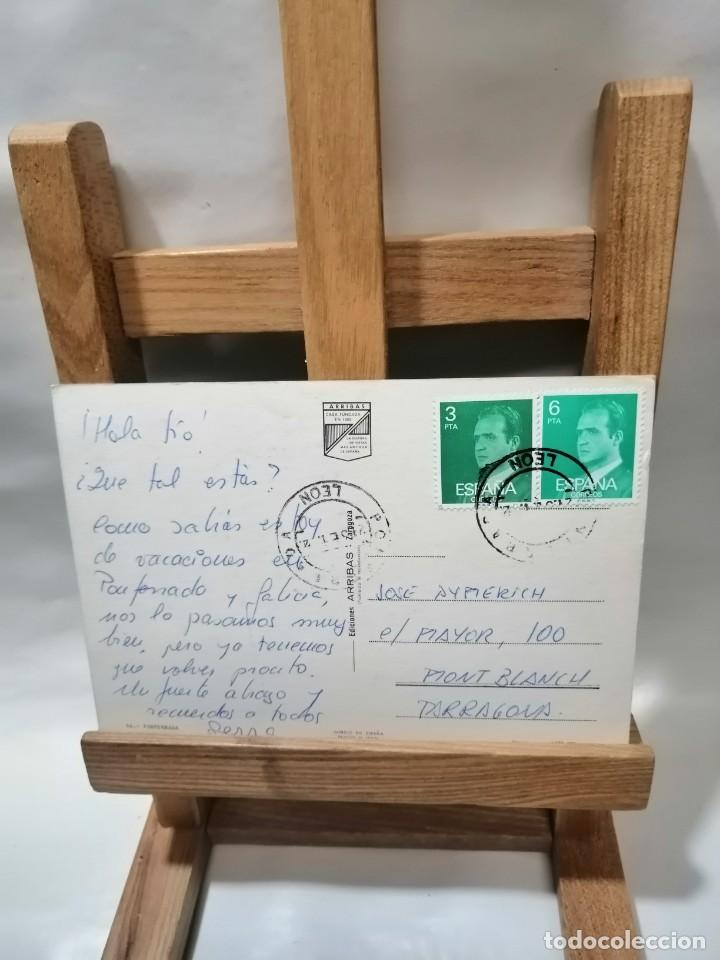 ¡Hola tío!
¿Que tal estás?
Como sabrás estoy
de vacaciones en
Ponferrada y Galicia,
nos lo pasamos muy
bien, pero ya tenemos
que volver pronto.
Un fuerte abrazo y
recuerdos a todos
ARRIBAS
CASA FUNDADA
EN
3
PTA
ESPAÑA
CORREOS
6
PTA
ESPAÑA
CORREOS
LEON
LEON
Ediciones ARRIBAS Zaragoza
JOSE AYMERICH
c/ MAYOR, 100
MONTBLANCH
TARRAGONA.
PONFERRADA
todocoleccion
todocoleccion.net